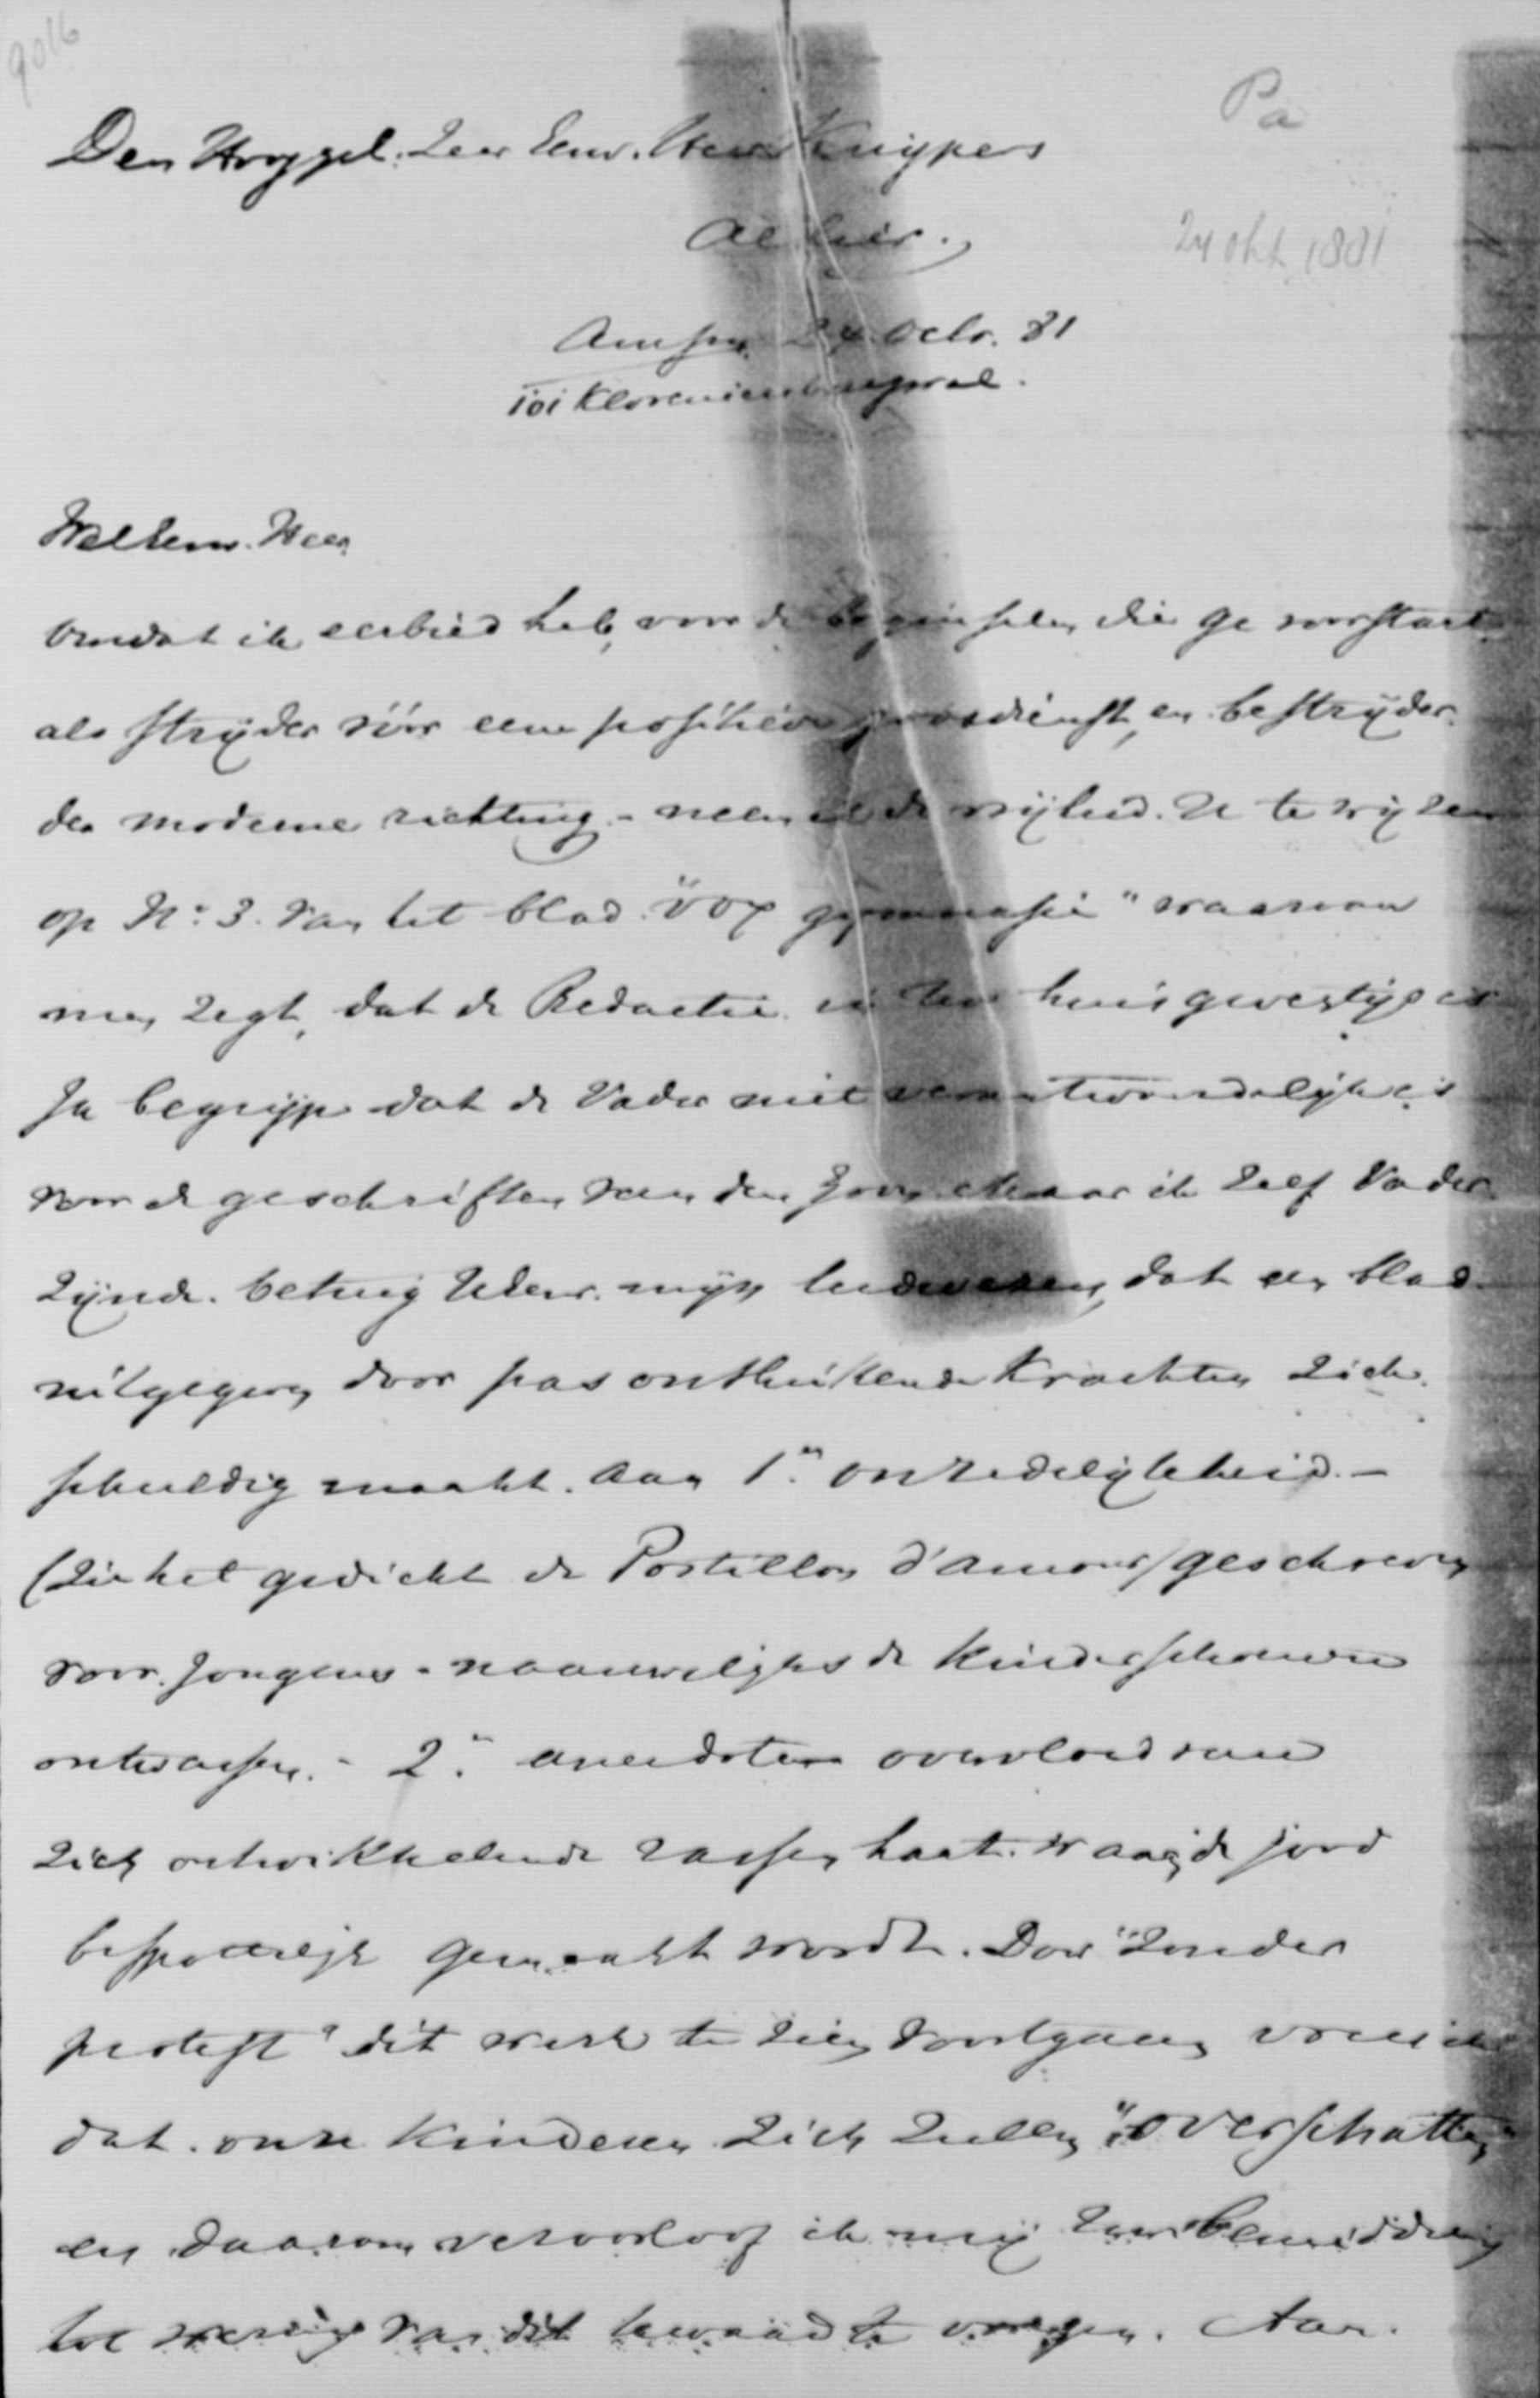 9016
Pa
Den Hooggel. Zeer Eerw. Heer Kuypers
Alhier.
24 okt 1881
Amst. 24 Octr. 81
101 Kloveniersburgwal.
WelEerw. Heer
Omdat ik eerbied heb, voor de beginselen die ge voorstaat
als stryder vóór eene positieve godsdienst, en bestryder
der moderne richting - neem ik de vryheid U te wyzen
op No. 3. van het blad "vox gymnasii" waarvan
men zegt, dat de Redactie in Uw huis gevestigd is
Ik begryp dat de Vader niet verantwoordelyk is
voor de geschriften van den Zoon maar ik zelf Vader
zynde. betuig UEerw. myn leedwezen, dat een blad
uitgegeven door pas ontluikende Krachten zich
schuldig maakt. aan 1o. onzedelykheid. -
(Zie het gedicht de Postillon d'amour) geschreven
voor jongens - naauwelyks de kinderschoenen
ontwassen. - 2o. anecdoten overvloed van
zich ontwikkelende rassen haat. waarin de jood
bespottelyk gemaakt wordt. Door "zonder
protest" dit werk te zien voortgaan vrees ik
dat onze Kinderen zich zullen "overschatten"
en daarom veroorloof ik my Uwe bemiddeling
tot wering van dit kwaad te vragen. Aan